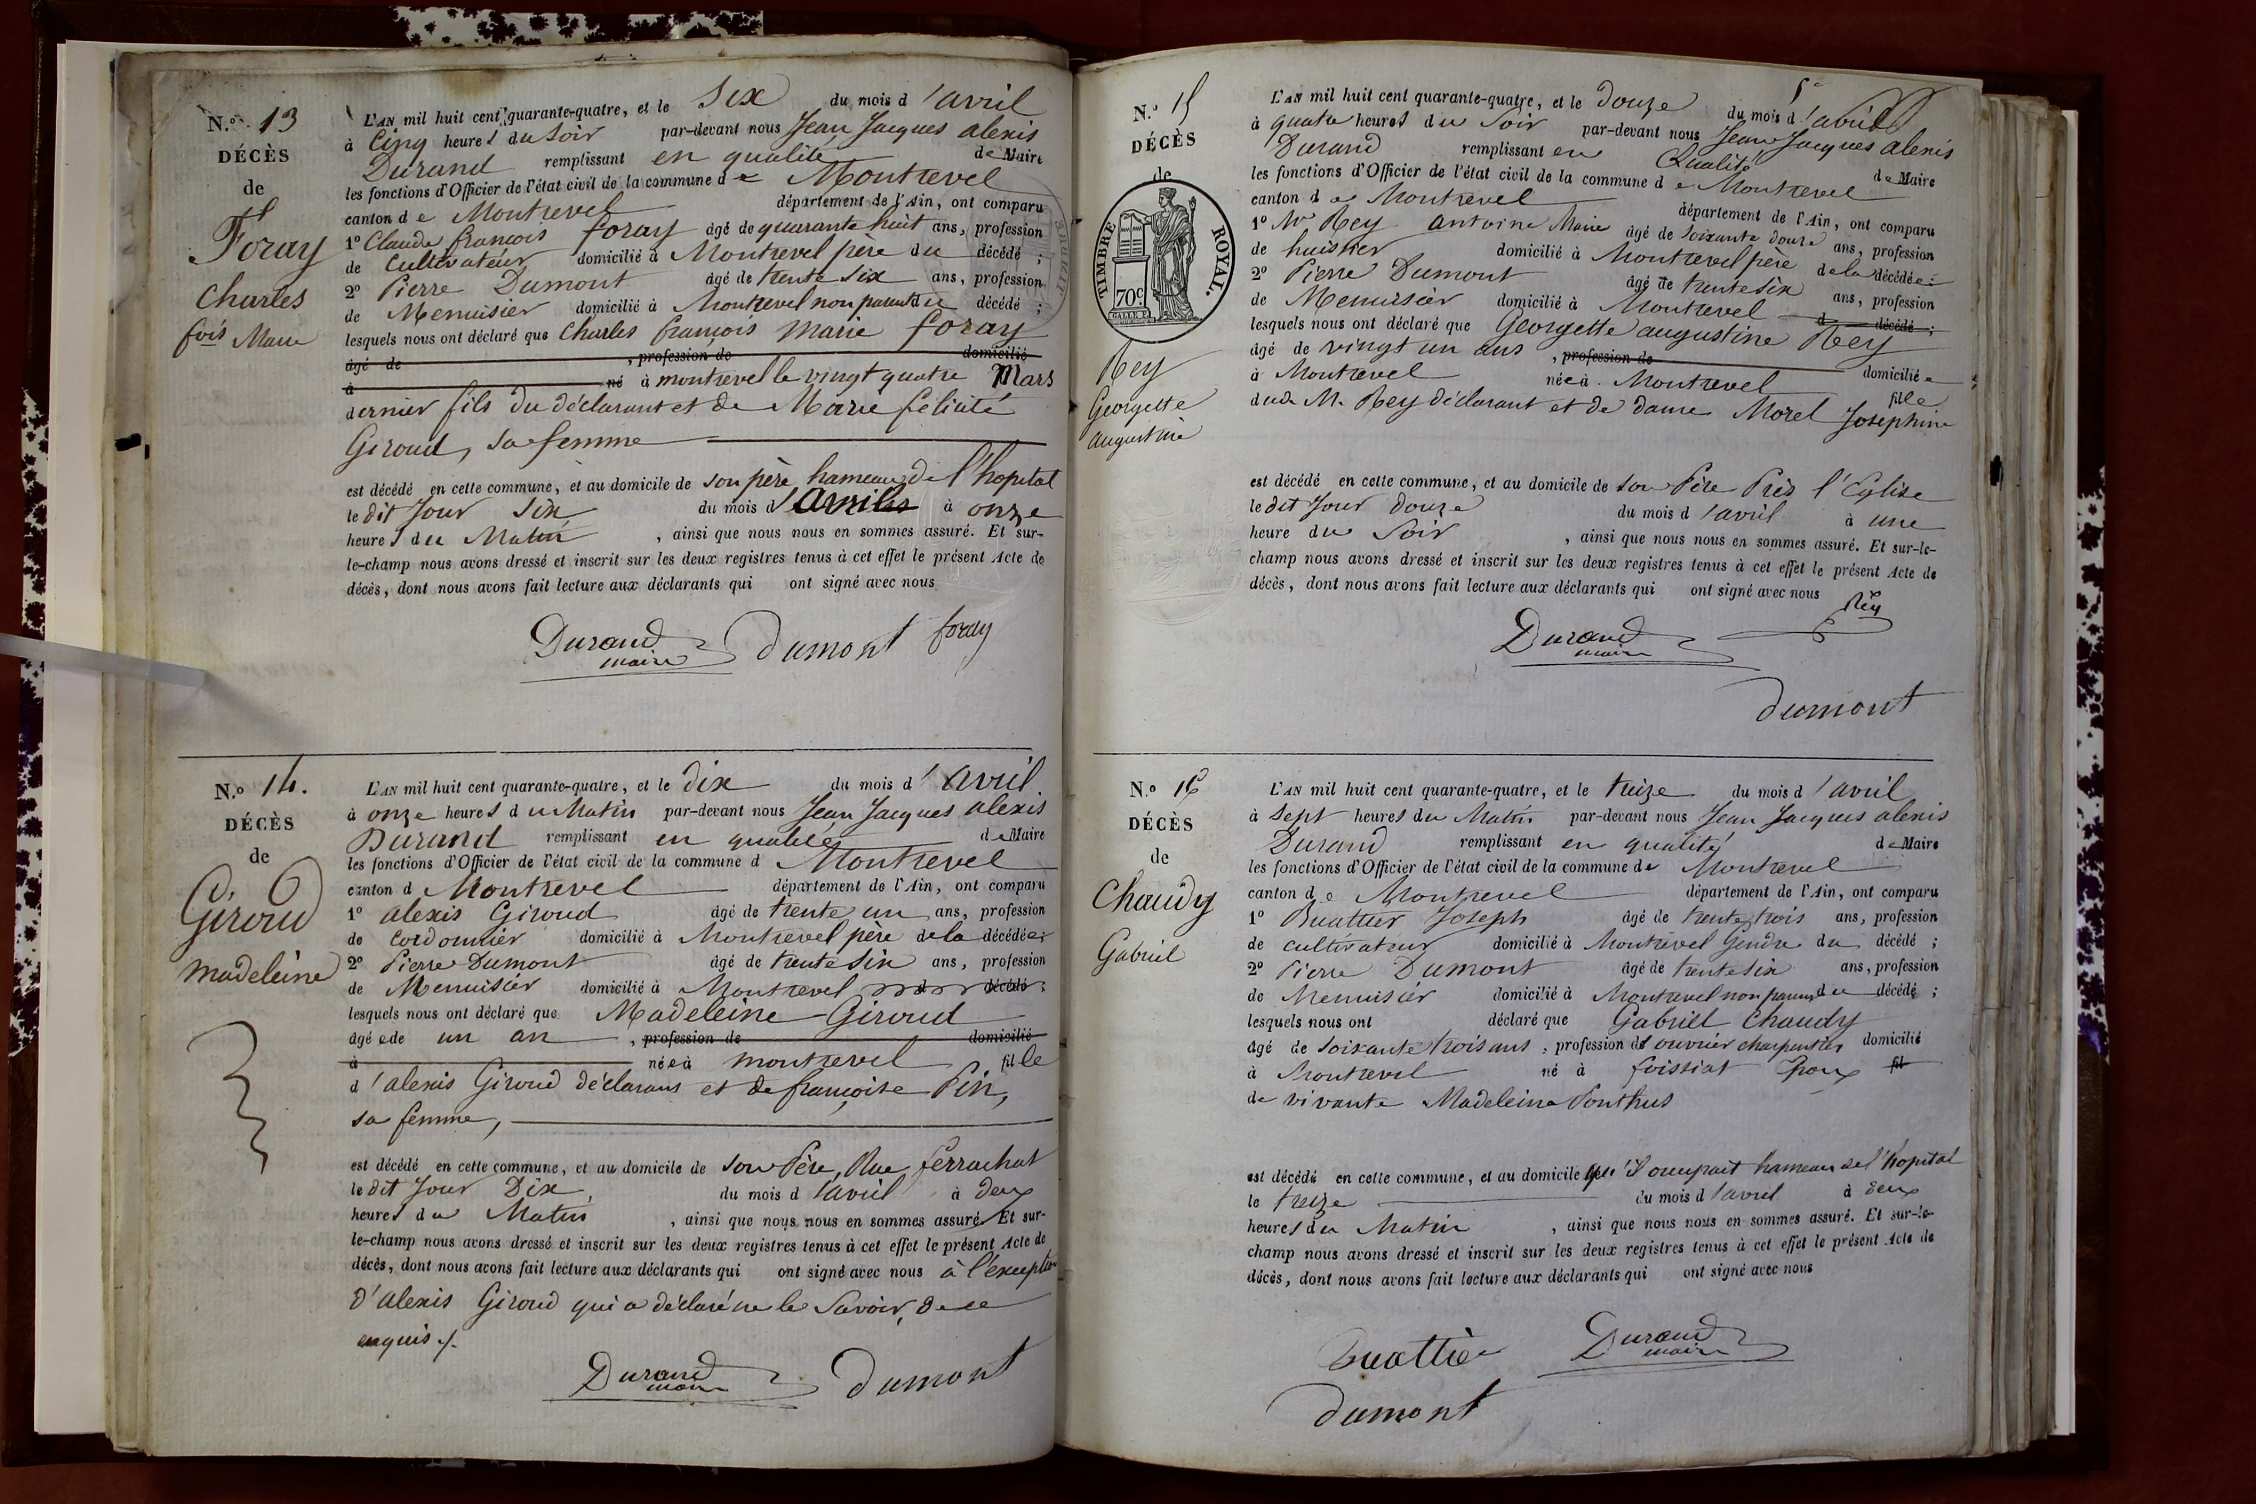 N.º 13
DÉCÈS
de
Foray
Charles
fois Marie
L'AN mil huit cent quarante-quatre, et le Six du mois d'avril
à Cinq heures du Soir par-devant nous Jean Jacques alexis
Durand remplissant en qualité de Maire
les fonctions d'Officier de l'état civil de la commune de Montrevel
canton de Montrevel département de l'Ain, ont comparu
1º Claude françois foray âgé de quarante huit ans, profession
de Cultivateur domicilié à Montrevel père du décédé ;
2º Pierre Dumont âgé de trente six ans, profession
de Menuisier domicilié à Montrevel non parent du décédé ;
lesquels nous ont déclaré que Charles françois Marie foray
âgé de , profession de domicilié
à né à montrevel le vingt quatre Mars
dernier fils du déclarant et de Marie félicité
Giroud, sa femme
est décédé en cette commune, et au domicile de son père hameau de l'hopital
le dit Jour Six du mois d'avril à onze
heures du Matin , ainsi que nous nous en sommes assuré. Et sur-
le-champ nous avons dressé et inscrit sur les deux registres tenus à cet effet le présent Acte de
décès, dont nous avons fait lecture aux déclarants qui ont signé avec nous
Durand maire Dumont foray
N.º 14.
DÉCÈS
de
Giroud
madeleine
L'AN mil huit cent quarante-quatre, et le dix du mois d'avril
à onze heures du Matin par-devant nous Jean Jacques alexis
Durand remplissant en qualité de Maire
les fonctions d'Officier de l'état civil de la commune d Montrevel
canton d Montrevel département de l'Ain, ont comparu
1º alexis Giroud âgé de trente un ans, profession
de cordonnier domicilié à Montrevel père de la décédée ;
2º Pierre Dumont âgé de trente six ans, profession
de Menuisier domicilié à Montrevel d décédé ;
lesquels nous ont déclaré que Madeleine Giroud
âgée de un an , profession de domicilié
à née à montrevel fille
d'alexis Giroud déclarant et de françoise Pin,
sa femme,
est décédé en cette commune, et au domicile de son Père, Rue ferrachat
le dit Jour Dix du mois d'avril à deux
heures du Matin , ainsi que nous nous en sommes assuré. Et sur-
le-champ nous avons dressé et inscrit sur les deux registres tenus à cet effet le présent Acte de
décès, dont nous avons fait lecture aux déclarants qui ont signé avec nous à l'exception
D'alexis Giroud qui a déclaré ne le Savoir, de ce
enquis ./.
Durand maire Dumont
N.º 15
DÉCÈS
de
TIMBRE ROYAL.
70c
Rey
Georgette
augustine
L'AN mil huit cent quarante-quatre, et le douze du mois d'avril
à quatre heures du Soir par-devant nous Jean Jacques alexis
Durand remplissant en Qualité de Maire
les fonctions d'Officier de l'état civil de la commune de Montrevel
canton de Montrevel département de l'Ain, ont comparu
1º Mr Rey antoine Marie âgé de soixante douze ans, profession
de huissier domicilié à Montrevel père de la décédée ;
2º Pierre Dumont âgé de trente six ans, profession
de Menuisier domicilié à Montrevel d décédé ;
lesquels nous ont déclaré que Georgette augustine Rey
âgé de vingt un ans , profession de domiciliée
à Montrevel née à Montrevel fille
dudt M. Rey déclarant et de dame Morel Josephine
est décédé en cette commune, et au domicile de son Père Près l'Eglise
le dit Jour douze du mois d'avril à une
heure du Soir , ainsi que nous nous en sommes assuré. Et sur-le-
champ nous avons dressé et inscrit sur les deux registres tenus à cet effet le présent Acte de
décès, dont nous avons fait lecture aux déclarants qui ont signé avec nous
Rey
Durand maire
Dumont
N.º 16
DÉCÈS
de
Chaudy
Gabriel
L'AN mil huit cent quarante-quatre, et le treize du mois d'avril
à Sept heures du Matin par-devant nous Jean Jacques alexis
Durand remplissant en qualité de Maire
les fonctions d'Officier de l'état civil de la commune de Montrevel
canton de Montrevel département de l'Ain, ont comparu
1º Buattier Joseph âgé de trente trois ans, profession
de cultivateur domicilié à Montrevel Gendre du décédé ;
2º Pierre Dumont âgé de trente six ans, profession
de Menuisier domicilié à Montrevel non parent du décédé ;
lesquels nous ont déclaré que Gabriel Chaudy
âgé de soixante trois ans , profession d'ouvrier charpentier domicilié
à Montrevel né à foissiat Epoux fil
de vivante Madeleine Ponthus
est décédé en cette commune, et au domicile qu'il occupait hameau de l'hopital
le treize du mois d'avril à deux
heures du Matin , ainsi que nous nous en sommes assuré. Et sur-le-
champ nous avons dressé et inscrit sur les deux registres tenus à cet effet le présent Acte de
décès, dont nous avons fait lecture aux déclarants qui ont signé avec nous
Buattier Durand maire
Dumont